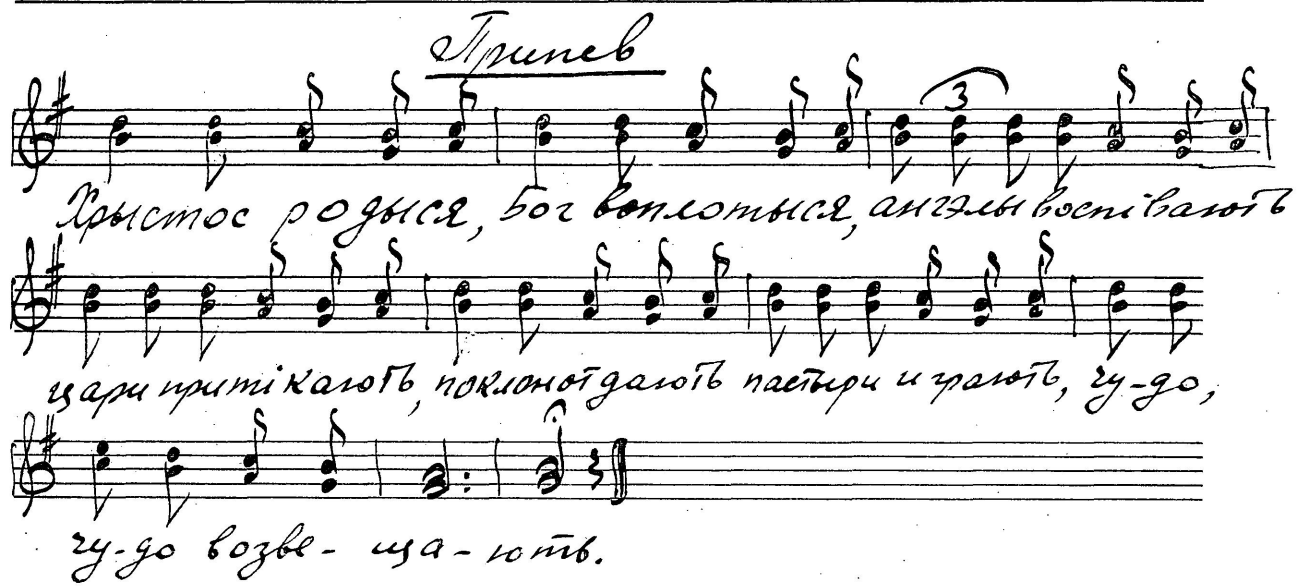 Припев
3
Хрыстос родыся, Бог воплотыся, ангэлы воспівають
цари притікають, поклон отдають пастыри играють, чу-до,
чу-до возве-ща-ють.